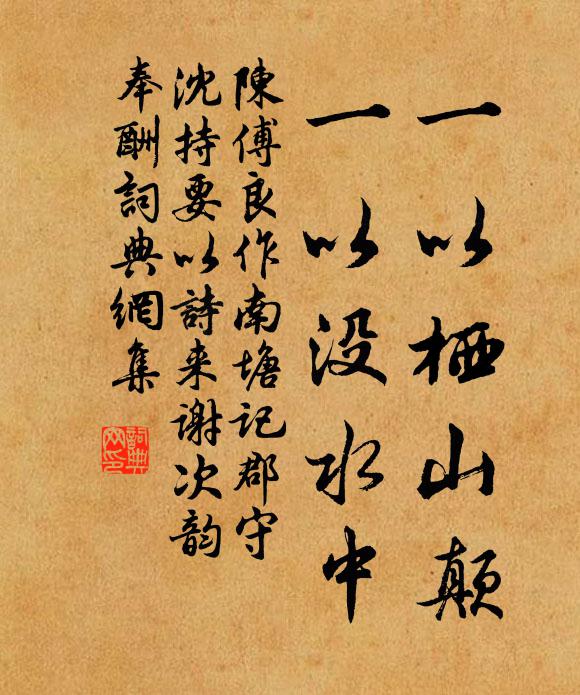 一以栖山颠
一以没水中
陳傅良作南塘記郡守
沈持要以詩来謝次韵
奉酬詞典網集
詞典
网印